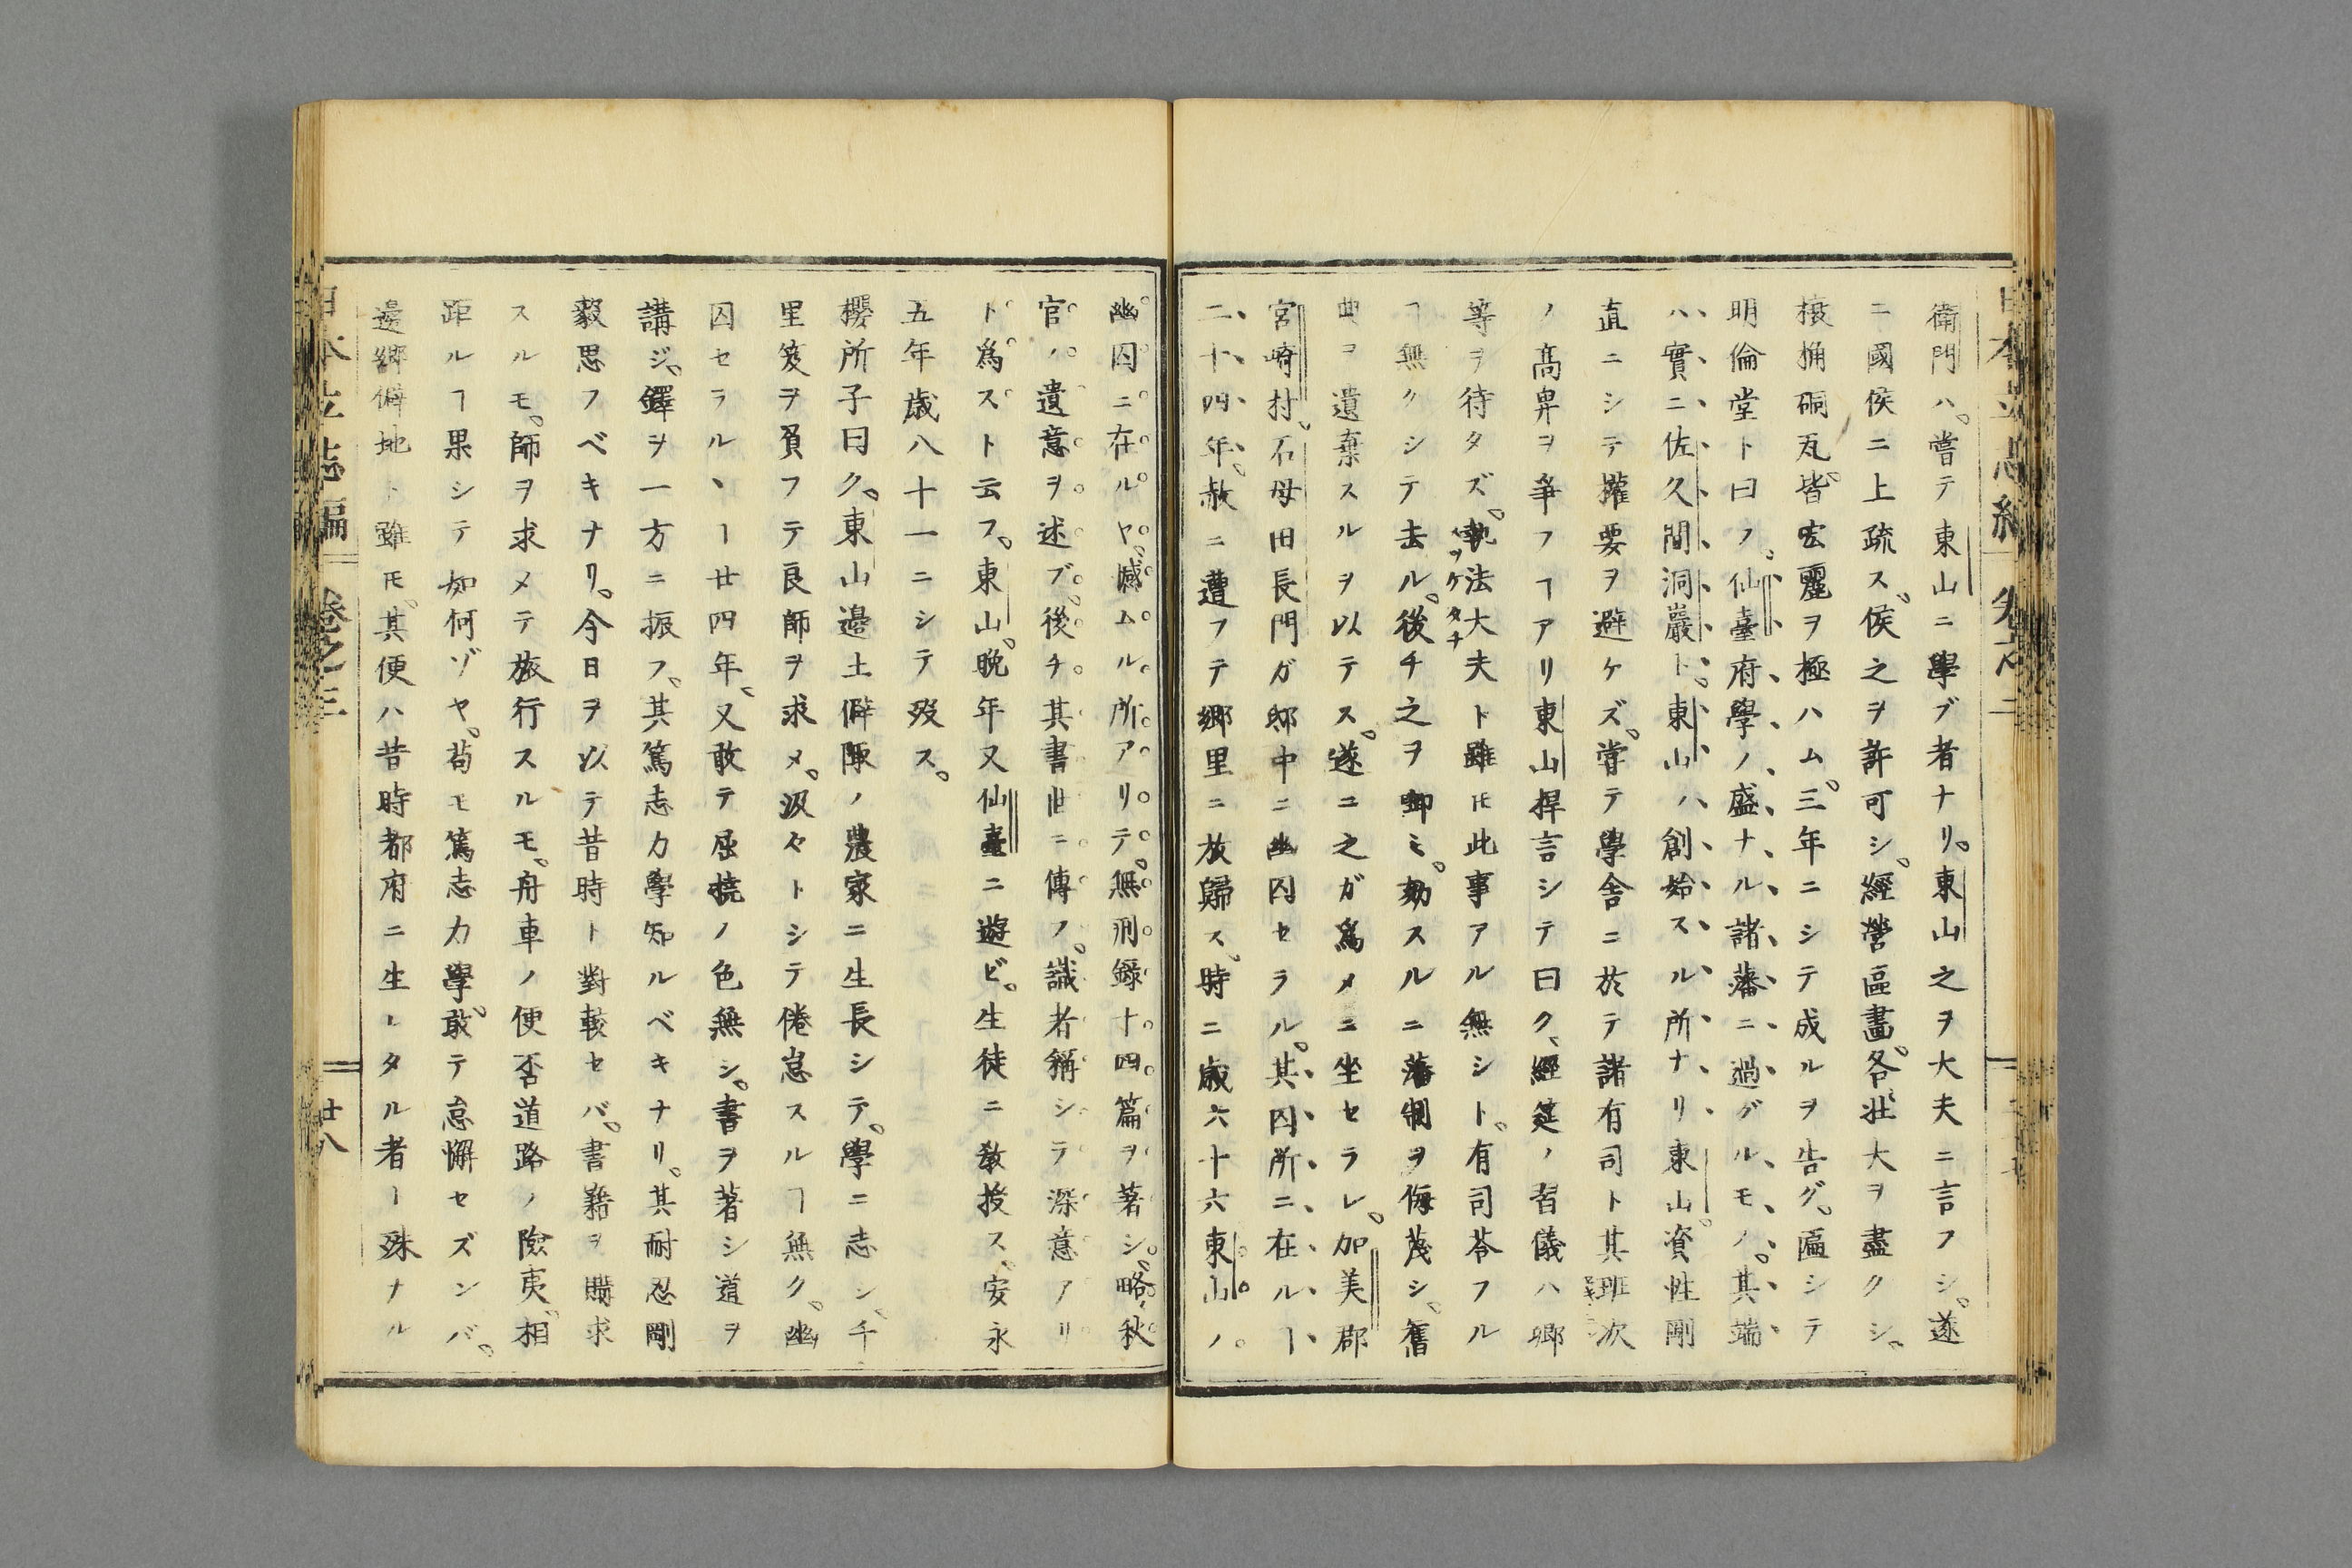 衛門ハ。嘗テ東山ニ學ブ者ナリ。東山之ヲ大夫ニ言フシ。遂
ニ國侯ニ上疏ス。侯之ヲ許可シ。經營區畫。各。壯大ヲ盡クシ。
榱桷硐瓦。皆宏麗ヲ極ハム。三年ニシテ成ルヲ告グ。匾シテ
明倫堂ト曰フ。仙臺府學ノ盛ナル諸藩ニ過グルモノ。其端
ハ實ニ佐久間洞巖ト。東山ハ創始スル所ナリ東山。資性剛
直ニシテ權要ヲ避ケズ。嘗テ學舎ニ於テ諸有司ト其班次
ノ髙卑ヲ爭フヿアリ東山捍言シテ曰ク、經筵ノ習儀ハ卿
等ヲ待タズ。執法大夫ト雖𪜈此事アル無シト。有司荅フル
ヿ無クシテ去ル。後チ之ヲ啣ミ。劾スルニ藩制ヲ侮蔑シ。舊
典ヲ遺棄スルヲ以テス。遂ニ之ガ爲メニ坐セラレ。加美郡
宮崎村。石母田長門ガ邸中ニ幽囚セラル。其囚所ニ在ルヿ
二十四年。赦ニ遭フテ郷里ニ放歸ス。時ニ歳六十六東山ノ
幽囚ニ在ルヤ。憾ムル所アリテ。無刑録十四篇ヲ著シ。略秋
官ノ遺意ヲ述ブ。後チ其書世ニ傳フ。識者稱シテ深意アリ
ト爲スト云フ。東山。晩年又仙臺ニ遊ビ。生徒ニ敎授ス。安永
五年歳八十一ニシテ歿ス。
櫻所子曰ク。東山邉土僻陬ノ農家ニ生長シテ。學ニ志シ。千
里笈ヲ負フテ良師ヲ求メ。汲々トシテ倦怠スルヿ無ク。幽
囚セラルヽヿ廿四年、又敢テ屈撓ノ色無シ。書ヲ著シ道ヲ
講ジ。鐸ヲ一方ニ振フ。其篤志力學知ルベキナリ。其耐忍剛
毅思フベキナリ。今日ヲ以テ昔時ト對較セバ。書籍ヲ購求
スルモ。師ヲ求メテ旅行スルモ。舟車ノ便否道路ノ險夷。相
距ルヿ果シテ如何ゾヤ。苟モ篤志力學。敢テ怠懈セズンバ。
邊鄕僻地ト雖𪜈。其便ハ昔時都府ニ生レタル者ヿ殊ナル
日本立志編 卷之三 廿八